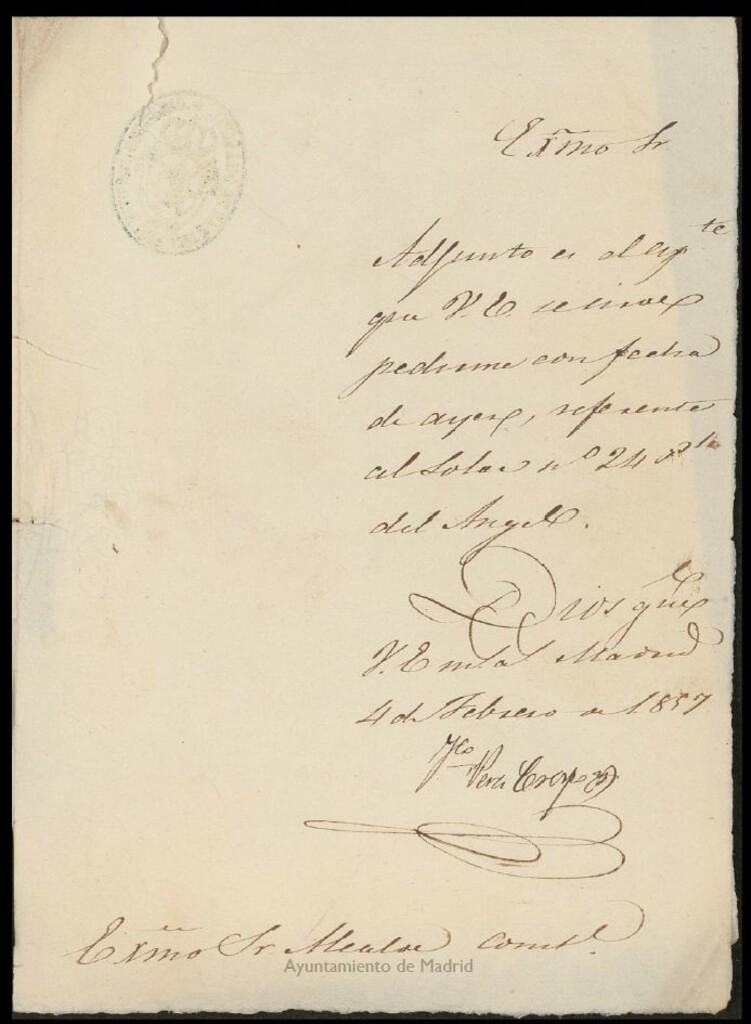 Exmo Sr
Adjunto es el espte
que V.E. se sirve
pedirme con fecha
de ayer, referente
al Solar nº 24
del Angel.
Dios gue
V.E. ms as Madrid
4 de Febrero de 1857
Exmo Sr Alcalde const.
Ayuntamiento de Madrid